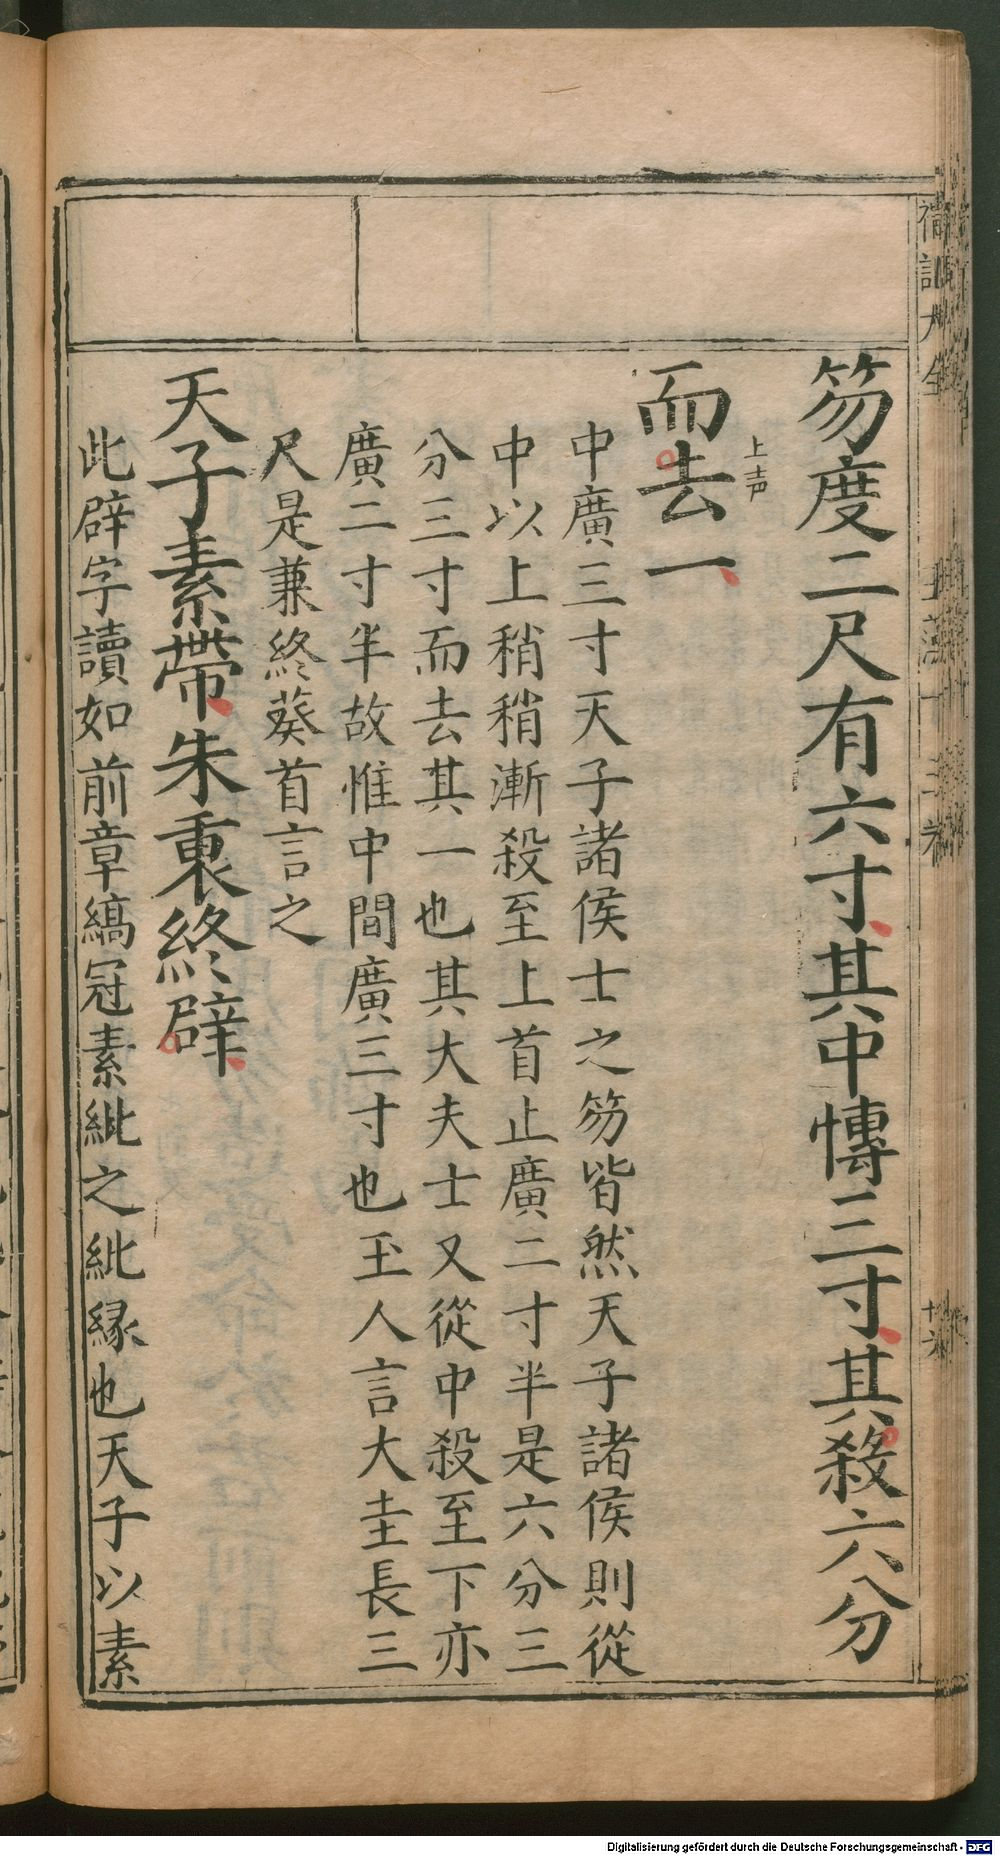 笏度二尺有六寸其中慱三寸其殺六分
上声
而去一
中廣三寸天子諸侯士之笏皆然天子諸侯則從
中以上稍稍漸殺至上首止廣二寸半是六分三
分三寸而去其一也其大夫士又從中殺至下亦
廣二寸半故惟中間廣三寸也玉人言大圭長三
尺是兼終葵首言之
天子素帶朱裏終辟
此辟字讀如前章縞冠素紕之紕緣也天子以素
十六
Digitalisierung gefördert durch die Deutsche Forschungsgemeinschaft - DFG